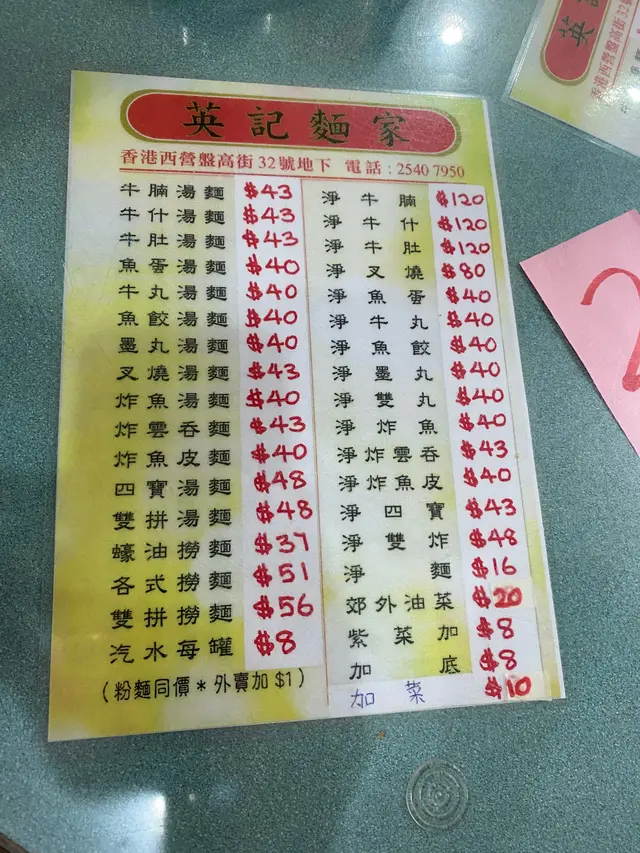 英記麵家
香港西營盤高街32號地下 電話：2540 7950
牛腩湯麵 $43
牛什湯麵 $43
牛肚湯麵 $43
魚蛋湯麵 $40
牛丸湯麵 $40
魚餃湯麵 $40
墨丸湯麵 $40
叉燒湯麵 $43
炸魚湯麵 $40
炸雲吞麵 $43
炸魚皮麵 $40
四寶湯麵 $48
雙拼湯麵 $48
蠔油撈麵 $37
各式撈麵 $51
雙拼撈麵 $56
汽水每罐 $8
(粉麵同價＊外賣加$1)
淨牛腩 $120
淨牛什 $120
淨牛肚 $120
淨叉燒 $80
淨魚蛋 $40
淨牛丸 $40
淨魚餃 $40
淨墨丸 $40
淨雙丸 $40
淨炸魚 $40
淨炸雲吞 $43
淨炸魚皮 $40
淨四寶 $43
淨雙炸 $48
淨麵 $16
郊外油菜 $20
紫菜加 $8
加底 $8
加菜 $10
英
香港西營盤高街32